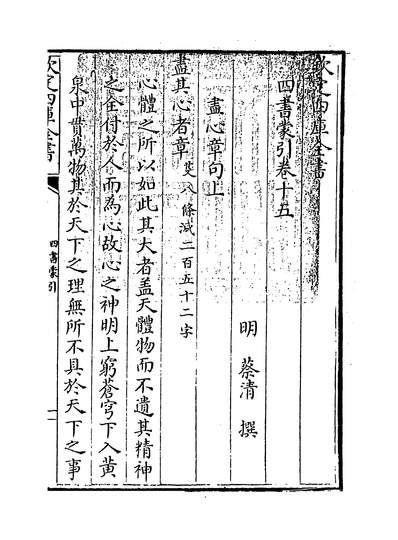 欽定四庫全書
四書蒙引卷十五
明 蔡清 撰
盡心章句上
盡其心者章 葼八條減二百五十二字
心體之所以如此其大者蓋天體物而不遺其精神
之全付於人而為心故心之神明上窮蒼穹下入黃
泉中貫萬物其於天下之理無所不具於天下之事
欽定四庫全書
四書蒙引
一